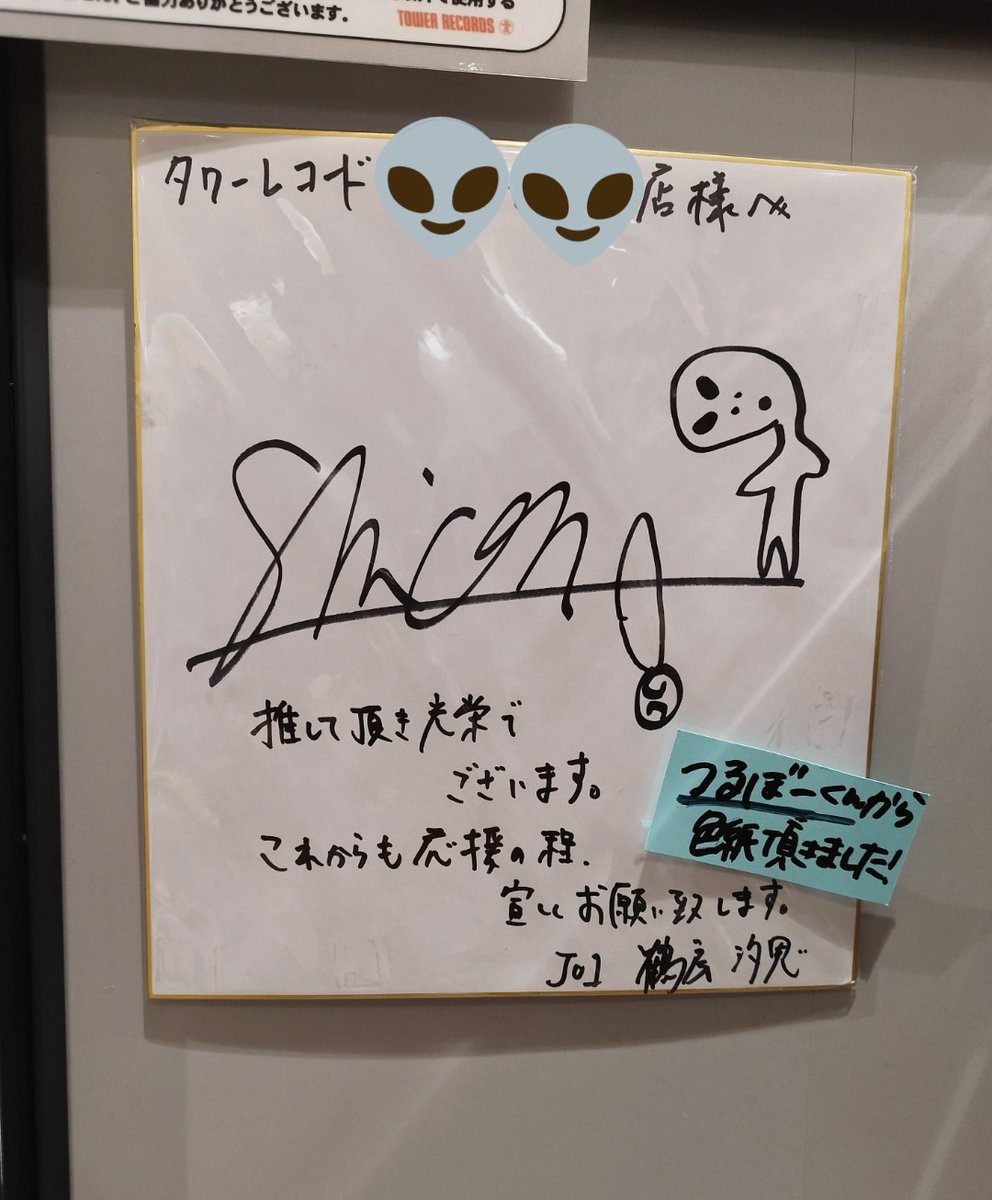 ご協力ありがとうございます。
使用する
TOWER RECORDS
タワーレコード
店様へ
Shion
推して頂き光栄で
ございます。
これからも応援の程、
宜しくお願い致します。
JO1 鶴房 汐恩
つるぼーくんから
色紙頂きました!